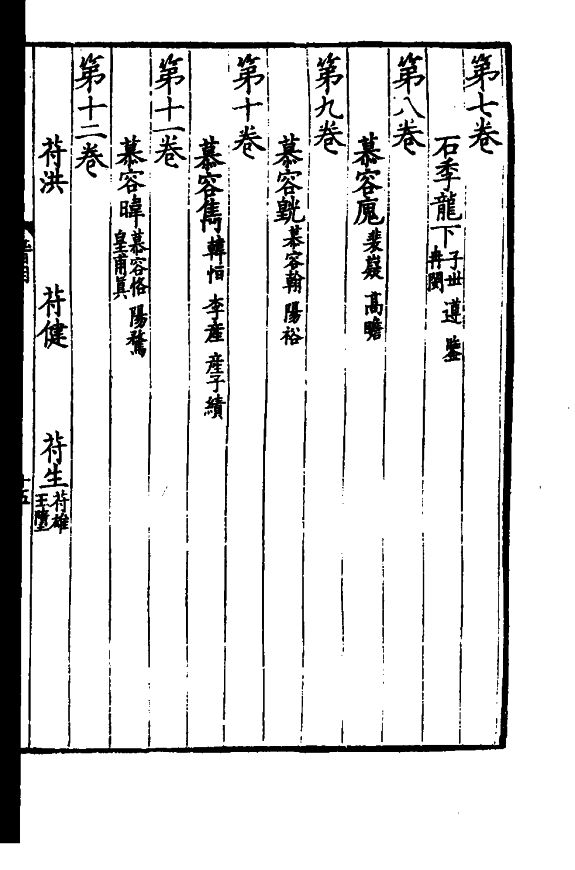 第七卷
石季龍下 子世 遵 鑒 冉閔
第八卷
慕容廆 裴嶷 高瞻
第九卷
慕容皝 慕容翰 陽裕
第十卷
慕容儁 韓恒 李產 產子績
第十一卷
慕容暐 慕容恪 陽騖 皇甫真
第十二卷
苻洪 苻健 苻生 苻雄 王墮
十五